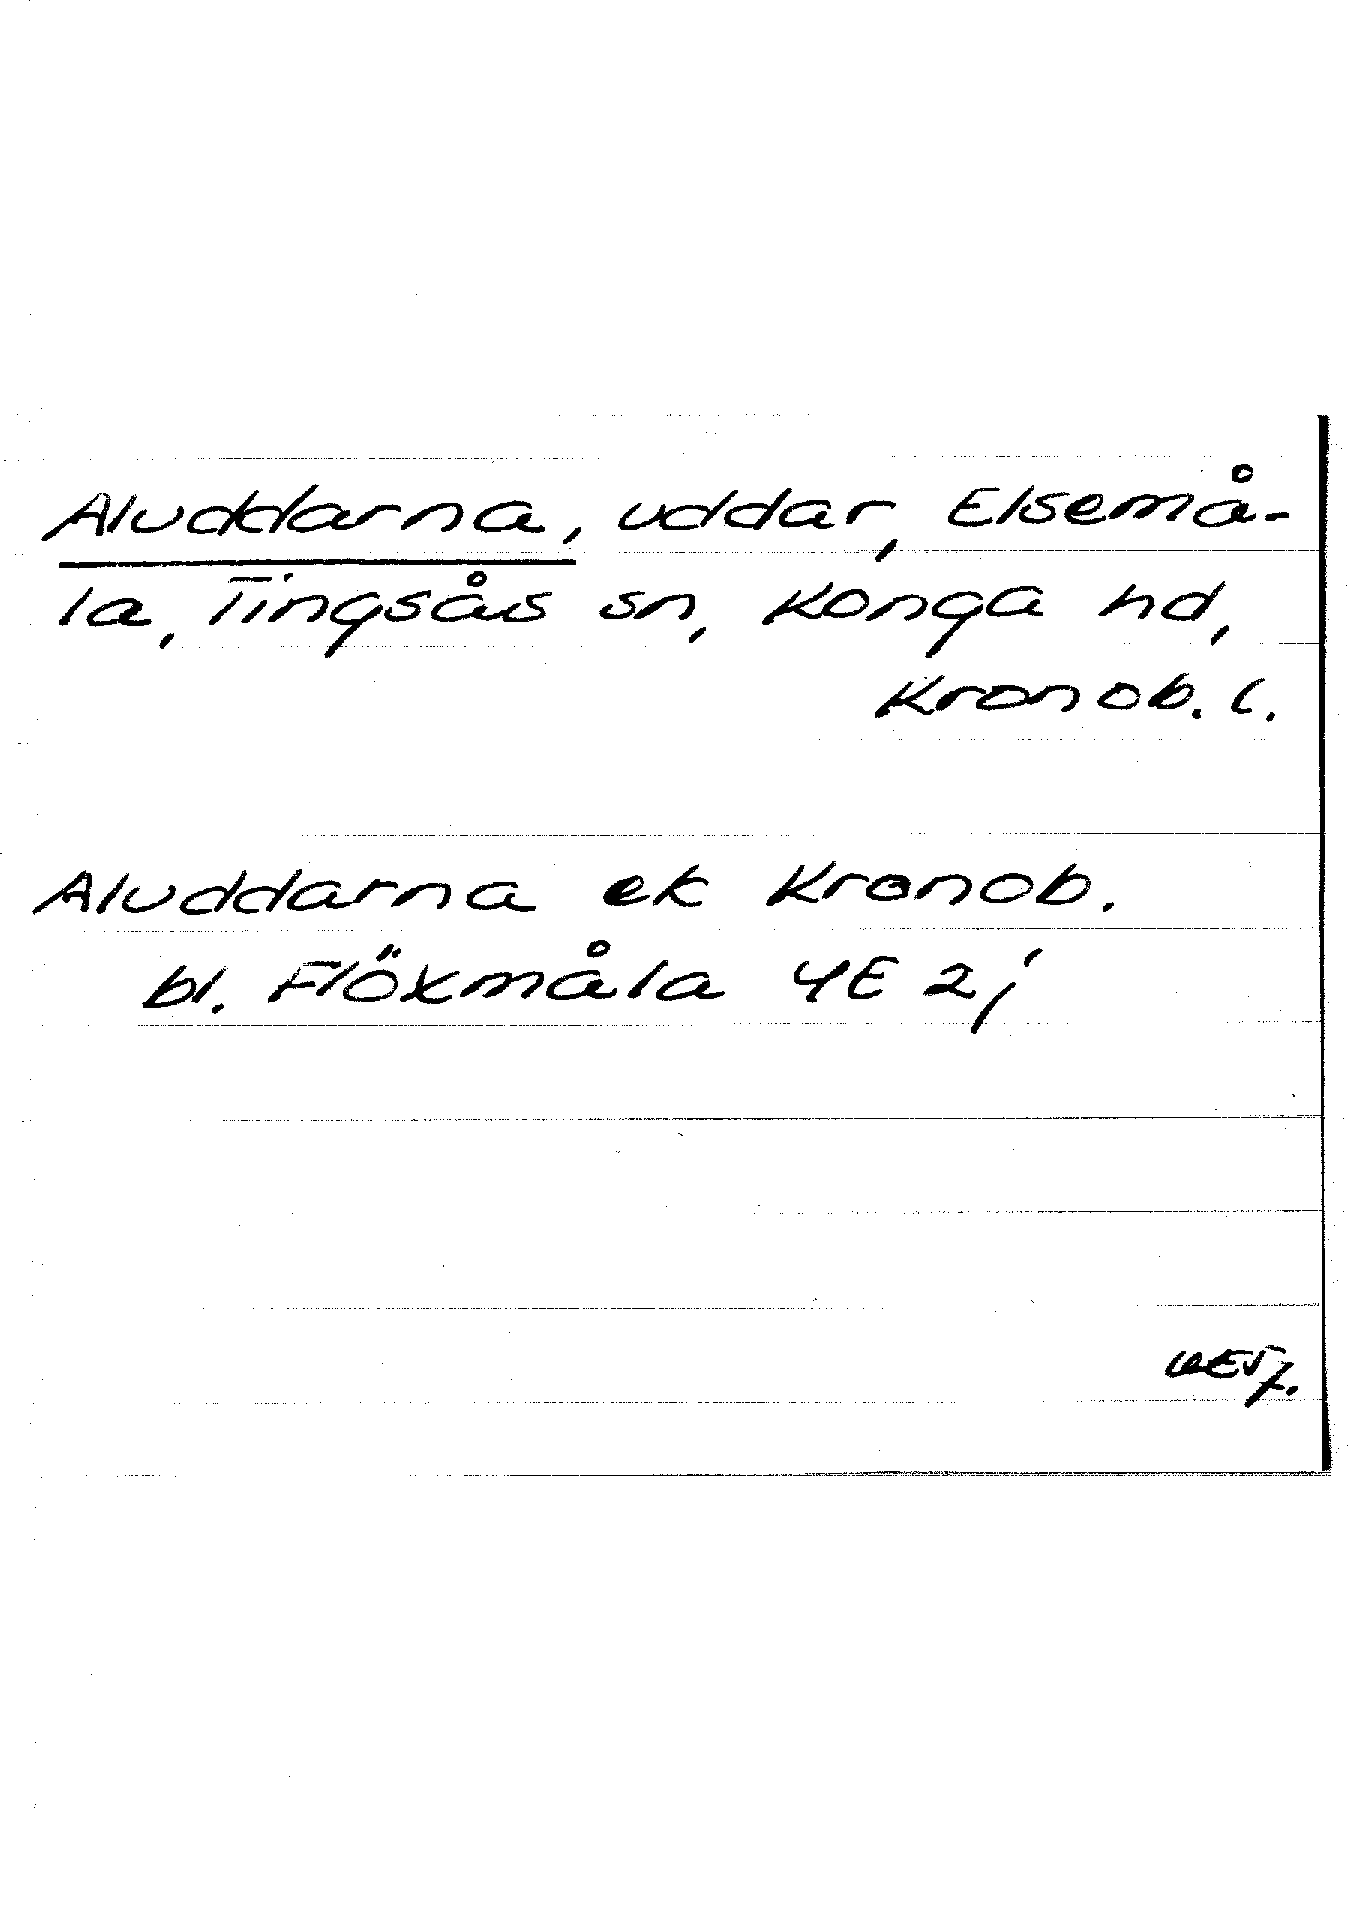 Aluddarna, uddar, Elsemå-
la, Tingsås sn, Konga hd,
Kronob. l.
Aluddarna ek Kronob.
bl. Flöxmåla 4E 2j